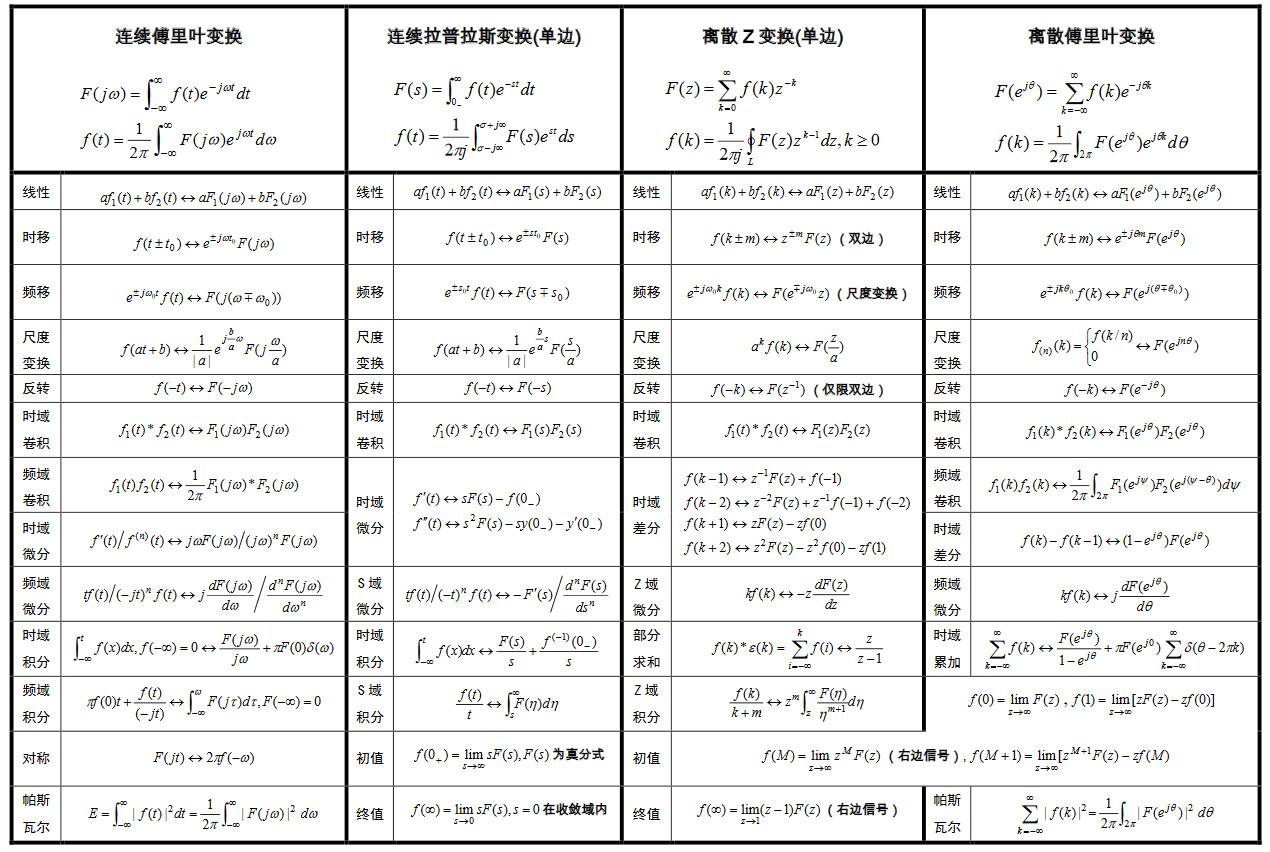 连续傅里叶变换
F(jω)=∫_{−∞}^{∞} f(t)e^{−jωt}dt
f(t)=\frac{1}{2π}∫_{−∞}^{∞} F(jω)e^{jωt}dω
连续拉普拉斯变换(单边)
F(s)=∫_{0_−}^{∞} f(t)e^{−st}dt
f(t)=\frac{1}{2πj}∫_{σ−j∞}^{σ+j∞} F(s)e^{st}ds
离散 Z 变换(单边)
F(z)=∑_{k=0}^{∞} f(k)z^{−k}
f(k)=\frac{1}{2πj}∮_L F(z)z^{k−1}dz, k≥0
离散傅里叶变换
F(e^{jθ})=∑_{k=−∞}^{∞} f(k)e^{−jθk}
f(k)=\frac{1}{2π}∫_{2π} F(e^{jθ})e^{jθk}dθ
线性 af_1(t)+bf_2(t)↔aF_1(jω)+bF_2(jω) 线性 af_1(t)+bf_2(t)↔aF_1(s)+bF_2(s) 线性 af_1(k)+bf_2(k)↔aF_1(z)+bF_2(z) 线性 af_1(k)+bf_2(k)↔aF_1(e^{jθ})+bF_2(e^{jθ})
时移 f(t±t_0)↔e^{±jωt_0}F(jω) 时移 f(t±t_0)↔e^{±st_0}F(s) 时移 f(k±m)↔z^{±m}F(z)（双边） 时移 f(k±m)↔e^{±jθm}F(e^{jθ})
频移 e^{±jω_0t}f(t)↔F(j(ω∓ω_0)) 频移 e^{±s_0t}f(t)↔F(s∓s_0) 频移 e^{±jω_0k}f(k)↔F(e^{∓jω_0}z)（尺度变换） 频移 e^{±jkθ_0}f(k)↔F(e^{j(θ∓θ_0)})
尺度变换 f(at+b)↔\frac{1}{|a|}e^{j\frac{b}{a}ω}F(j\frac{ω}{a}) 尺度变换 f(at+b)↔\frac{1}{|a|}e^{\frac{b}{a}s}F(\frac{s}{a}) 尺度变换 a^k f(k)↔F(\frac{z}{a}) 尺度变换 f_{(n)}(k)={f(k/n) 0 ↔F(e^{jnθ})
反转 f(−t)↔F(−jω) 反转 f(−t)↔F(−s) 反转 f(−k)↔F(z^{−1})（仅限双边） 反转 f(−k)↔F(e^{−jθ})
时域卷积 f_1(t)*f_2(t)↔F_1(jω)F_2(jω) 时域卷积 f_1(t)*f_2(t)↔F_1(s)F_2(s) 时域卷积 f_1(t)*f_2(t)↔F_1(z)F_2(z) 时域卷积 f_1(k)*f_2(k)↔F_1(e^{jθ})F_2(e^{jθ})
频域卷积 f_1(t)f_2(t)↔\frac{1}{2π}F_1(jω)*F_2(jω)
时域微分 f′(t)/f^{(n)}(t)↔jωF(jω)/(jω)^nF(jω)
时域微分
f′(t)↔sF(s)−f(0_−)
f″(t)↔s^2F(s)−sy(0_−)−y′(0_−)
时域差分
f(k−1)↔z^{−1}F(z)+f(−1)
f(k−2)↔z^{−2}F(z)+z^{−1}f(−1)+f(−2)
f(k+1)↔zF(z)−zf(0)
f(k+2)↔z^2F(z)−z^2f(0)−zf(1)
频域卷积 f_1(k)f_2(k)↔\frac{1}{2π}∫_{2π}F_1(e^{jψ})F_2(e^{j(ψ−θ)})dψ
时域差分 f(k)−f(k−1)↔(1−e^{jθ})F(e^{jθ})
频域微分 tf(t)/(−jt)^nf(t)↔j\frac{dF(jω)}{dω}/\frac{d^nF(jω)}{dω^n} S 域微分 tf(t)/(−t)^nf(t)↔−F′(s)/\frac{d^nF(s)}{ds^n} Z 域微分 kf(k)↔−z\frac{dF(z)}{dz} 频域微分 kf(k)↔j\frac{dF(e^{jθ})}{dθ}
时域积分 ∫_{−∞}^{t}f(x)dx, f(−∞)=0↔\frac{F(jω)}{jω}+πF(0)δ(ω) 时域积分 ∫_{−∞}^{t}f(x)dx↔\frac{F(s)}{s}+\frac{f^{(−1)}(0_−)}{s} 部分求和 f(k)*ε(k)=∑_{i=−∞}^{k}f(i)↔\frac{z}{z−1} 时域累加 ∑_{k=−∞}^{∞}f(k)↔\frac{F(e^{jθ})}{1−e^{jθ}}+πF(e^{j0})∑_{k=−∞}^{∞}δ(θ−2πk)
频域积分 πf(0)t+\frac{f(t)}{(−jt)}↔∫_{−∞}^{ω}F(jτ)dτ, F(−∞)=0 S 域积分 \frac{f(t)}{t}↔∫_{s}^{∞}F(η)dη Z 域积分 \frac{f(k)}{k+m}↔z^m∫_{z}^{∞}\frac{F(η)}{η^{m+1}}dη f(0)=lim_{z→∞}F(z) , f(1)=lim_{z→∞}[zF(z)−zf(0)]
对称 F(jt)↔2πf(−ω) 初值 f(0_+)=lim_{s→∞}sF(s), F(s)为真分式 初值 f(M)=lim_{z→∞}z^MF(z)（右边信号）, f(M+1)=lim_{z→∞}[z^{M+1}F(z)−zf(M)
帕斯瓦尔 E=∫_{−∞}^{∞}|f(t)|^2dt=\frac{1}{2π}∫_{−∞}^{∞}|F(jω)|^2 dω 终值 f(∞)=lim_{s→0}sF(s), s=0在收敛域内 终值 f(∞)=lim_{z→1}(z−1)F(z)（右边信号） 帕斯瓦尔 ∑_{k=−∞}^{∞}|f(k)|^2=\frac{1}{2π}∫_{2π}|F(e^{jθ})|^2 dθ